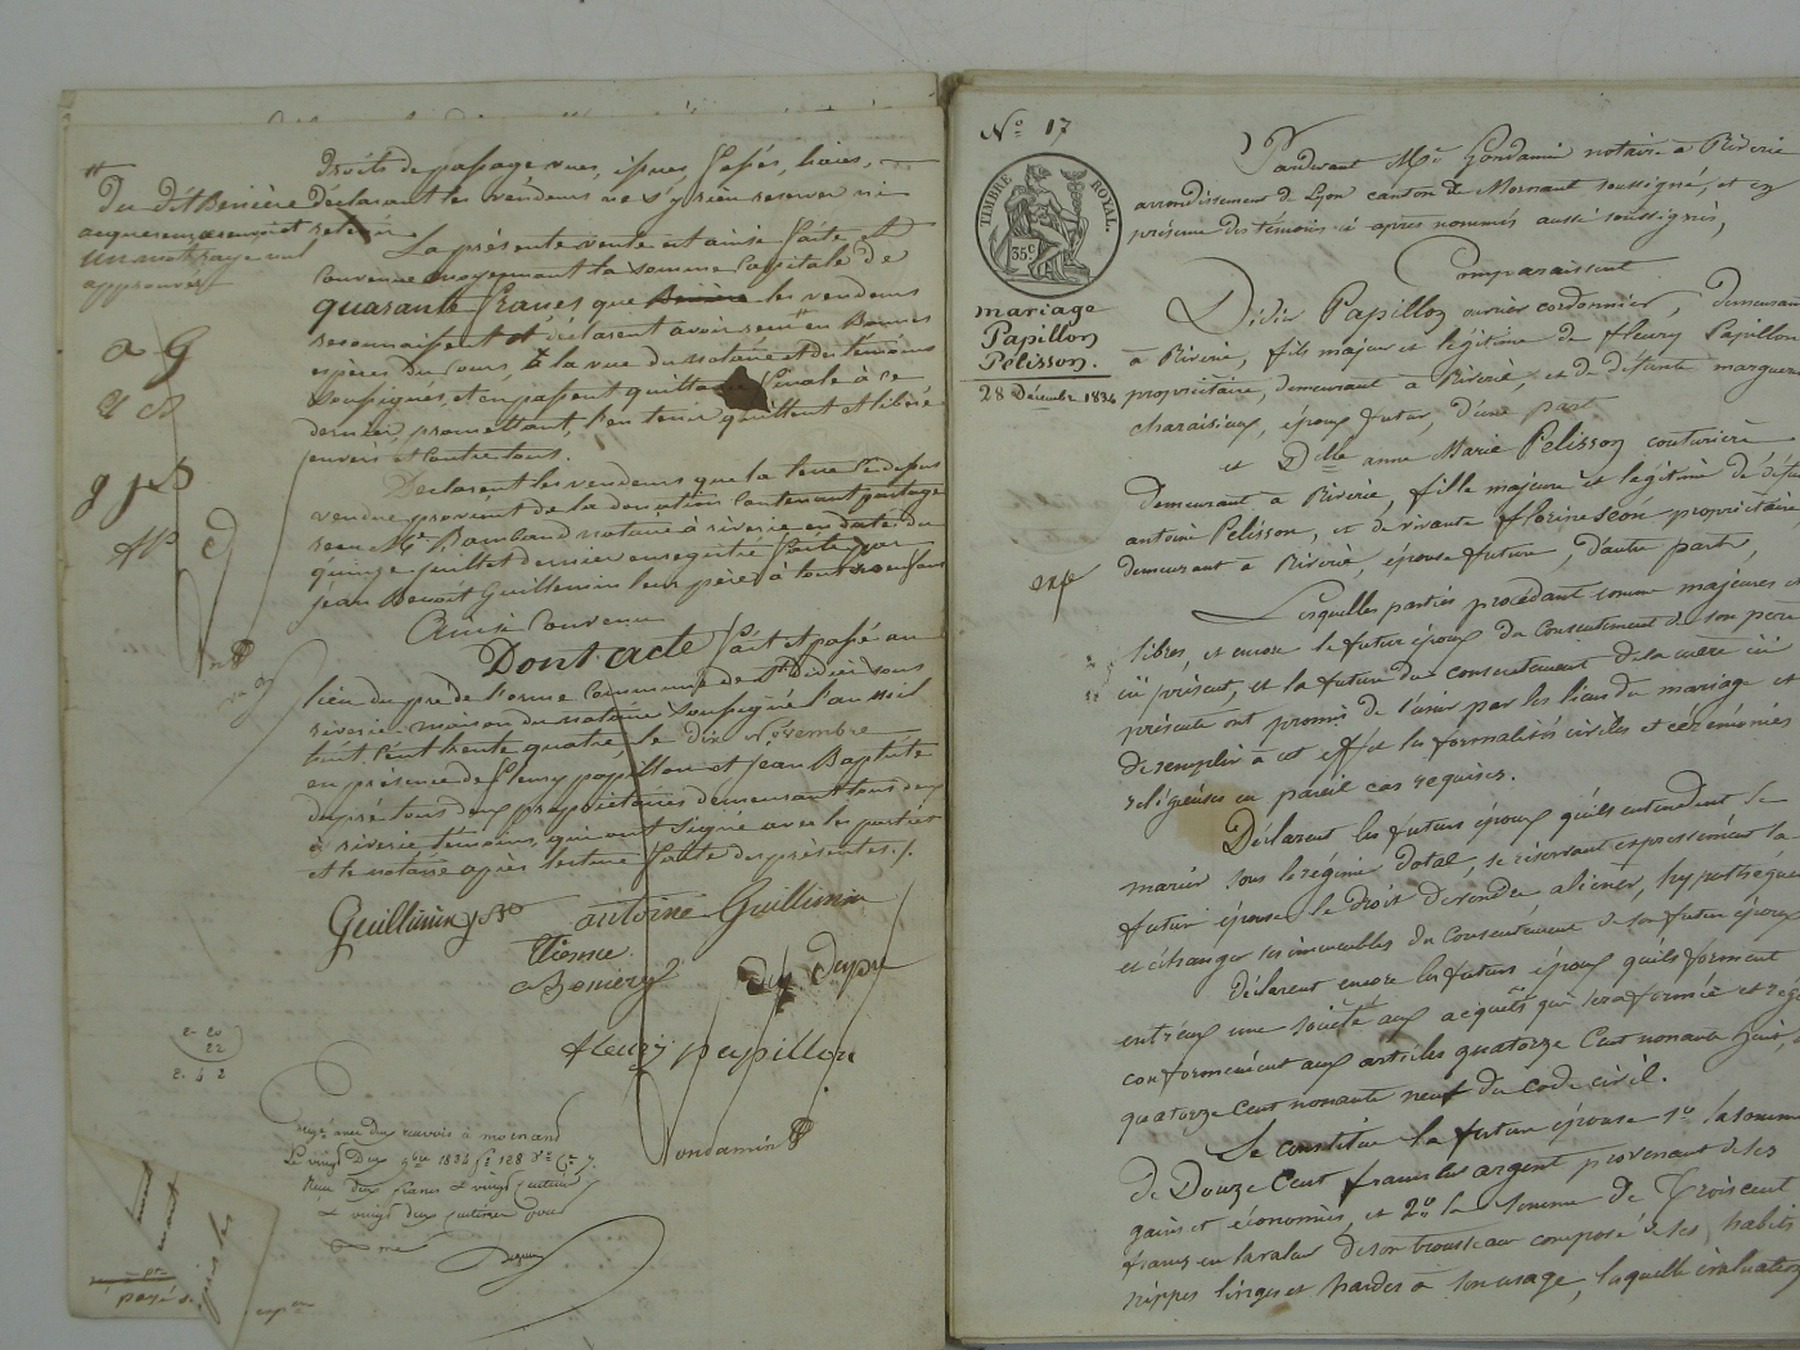 droits de passage vues, issues, fossés, haies,
du dit Benière déclarant les vendeurs ne s'y rien reserver ni
acquereur renvoi et retenir
un mot rayé nul
approuvés
La présente vente est ainsi faite et
Convenue moyennant la somme Capitale de
quarante francs que les vendeurs
reconnaissent et déclarent avoir reçu en Bonnes
espèces du Cours, à la vue du notaire et des témoins
soussignés, et en passent quittance finale à ce
dernier, promettant, l'en tenir quitte et libéré
envers et Contre tous.
Déclarent les vendeurs que la terre Ci-dessus
vendue provient de la donation Contenant partage
reçu Me Rambaud notaire à riverie en date du
quinze juillet dernier enregistré faite par
jean Benoit Guillermin leur père, à tout
Ainsi Convenu
Dont acte fait et passé au
lieu du pré de l'orme Commune de St Didier sous
riverie maison du notaire soussigné l'an mil
huit Cent trente quatre, le dix Novembre
en présence de fleury papillon et jean Baptiste
dupré tous deux propriétaires demeurant tous deux
à riverie témoins, qui ont signé avec les parties
et le notaire après lecture faite des présentes./.
a G
g js
fp d
Guillimin antoine Guillimin
Dupré
fleury papillon
Gondamin
2. 20
22
2. 42
Le vingt Deux 9bre 1834 fo 128
Reçu deux francs & vingt centimes
& vingt deux centimes pour
payés
No 17
TIMBRE ROYAL.
35c
mariage
Papillon
Pelisson.
28 Décembre 1834
Pardevant Me Gondamin notaire à Riverie
arrondissement de Lyon canton de Mornant soussigné, et en
présence des témoins ci après nommés aussi soussignés,
Comparaissent
Didier Papillon ouvrier cordonnier, demeurant
à Riverie, fils majeur et légitime de fleury Papillon
propriétaire, demeurant à Riverie, et de défunte marguerite
charaisieux, époux futur, d'une part
et Dlle anne Marie Pelisson couturière
demeurant à Riverie, fille majeure et légitime de défunt
antoine Pelisson, et de vivante florine Séon propriétaire
demeurant à Riverie, épouse future, d'autre part,
Lesquelles parties procédant comme majeures et
libres, et encore le futur époux du Consentement de son père
ici présent, et la future du consentement de la mère ici
présente ont promis de s'unir par les liens du mariage et
de remplir à cet effet les formalités civiles et cérémonies
religieuses en pareil cas requises.
Déclarent les futurs époux qu'ils entendent se
marier sous le régime dotal, se réservant expressément la
future épouse le droit de vendre, aliéner, hypothéquer
et échanger ses immeubles du Consentement de son futur époux
Déclarent encore les futurs époux qu'ils forment
entr'eux une société aux acquêts qui sera formée et régie
conformément aux articles quatorze Cent nonante huit, et
quatorze Cent nonante neuf du code civil.
Se constitue la future épouse 1o la somme
de Douze Cent francs en argent provenant de ses
gains et économies, et 2o la somme de Trois cent
francs en la valeur de son trousseau composé de ses habits
nippes linges et hardes à son usage, laquelle évaluation